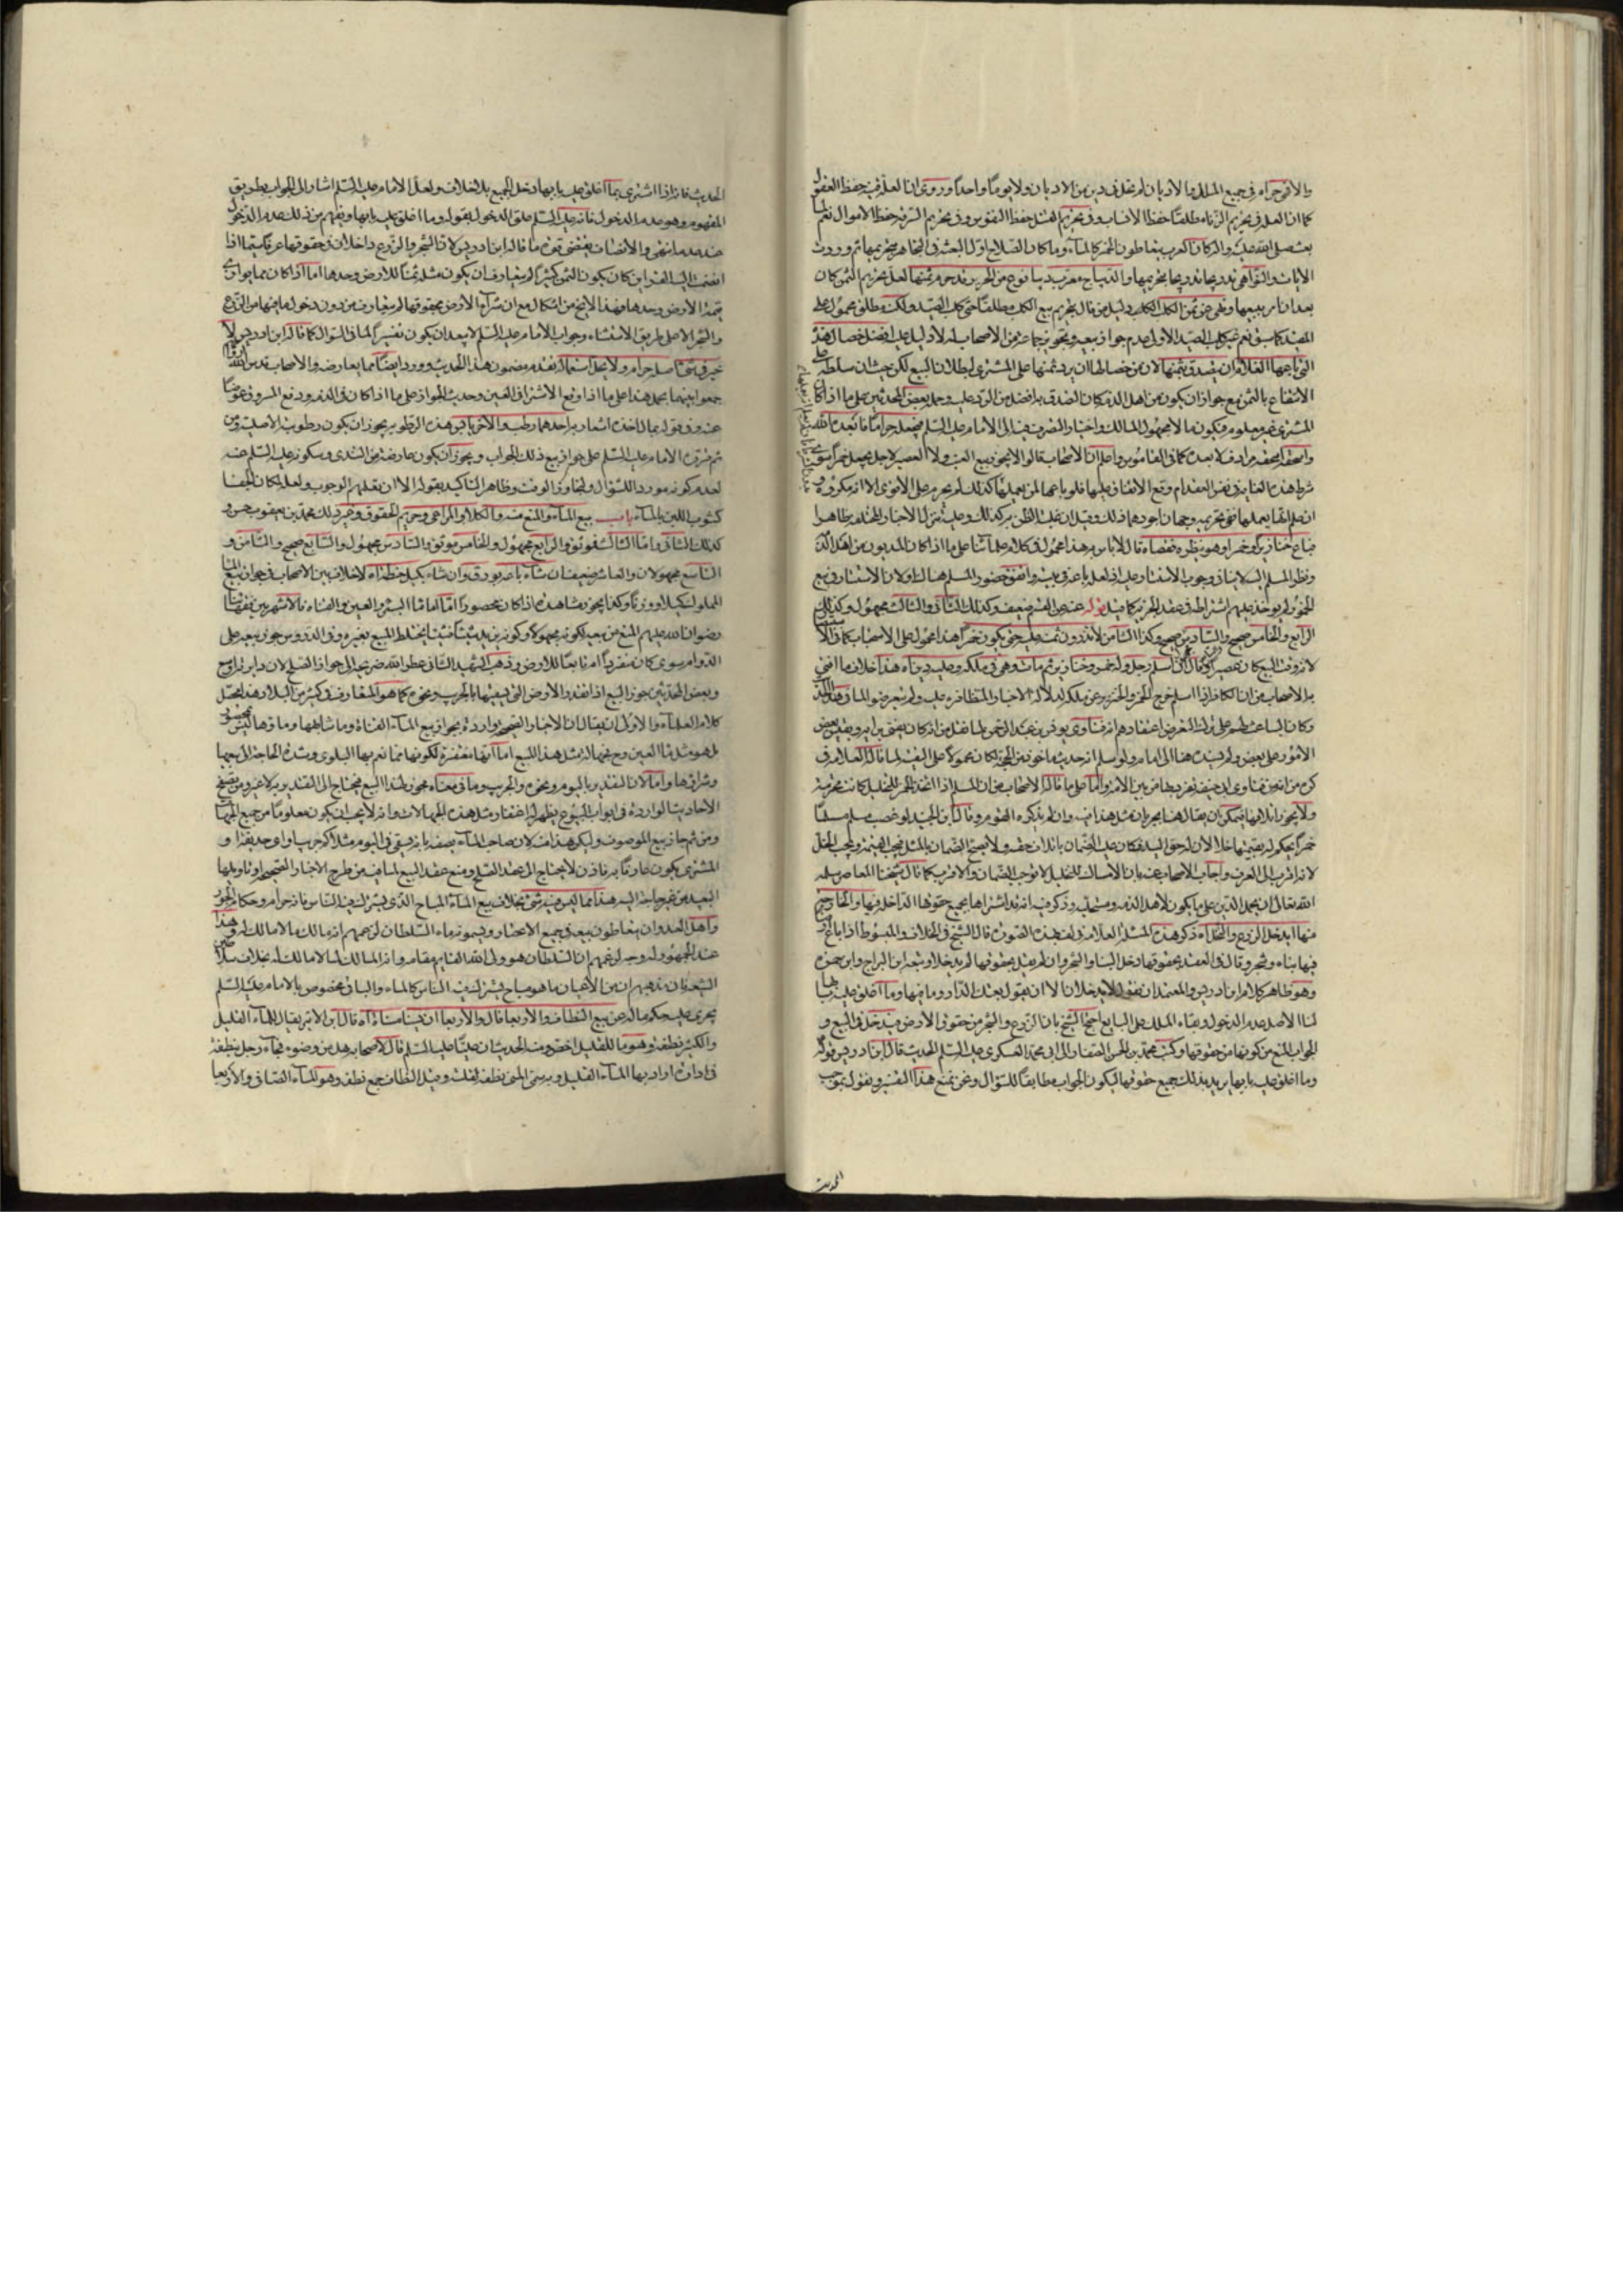 والا فهو حرام في جميع الملل والاديان لم تحل في دين من الاديان ولا يوما واحدا وروى ان العلة فيه حفظ العقول
كما ان العلة في تحريم الزناء مطلقا حفظ الانساب وفي تحريم القتل حفظ النفوس وفي تحريم السرقة حفظ الاموال نعم لما
بعث صلى الله عليه واله كان العرب يتعاطون الخمر كالماء وما كان الصلاح اول البعثة في التجاهر بتحريمها ثم وردت
الايات والنواهي
بعد ان امر ببيعها ونهى عن ثمن الكلب الكلاب دليل من قال بتحريم بيع الكلب مطلقا حتى كلب الصيد ولكنه مطلق محمول على
المقيد كما سبق نعم غير كلب الصيد الاولى عدم جواز بيعه وتجويز جماعة من الاصحاب له لا دليل عليه
التي باعها الغلام ان يتصدق بثمنها لان من خصالها ان يرد ثمنها على المشتري لبطلان البيع لكن حيث ان سلطه على
الانتفاع بالثمن مع جواز ان يكون من اهل الذمة كان الصدقة به افضل من الرد عليه وحمله بعض المحدثين على ما اذا كان
المشتري غير معلوم فيكون مالا مجهول المالك واختيار التصرف فيه الى الامام عليه السلم فيجعله حراما فابعده الله
واسحقه اسحقه مرادف لابعده كما في القاموس واعلم ان الاصحاب قالوا لا يجوز بيع العنب ولا العصير لاجل يعمل خمرا سواء
شرط هذه الغاية في نفس العقد ام وقع الاتفاق عليها فلو باعها لمن يعملها كذلك لم يحرم على الاقوى الا انه مكروه و
ان علم انه يعملها ففي تحريمه وجهان اجودهما ذلك وقيل ان غلبة الظن به كذلك وعليه تنزل الاخبار المختلفة ظاهرا
فباع خنازير او خمرا وهو ينظره فقضاه قال لا باس به هذا محمول في كلام علمائنا على ما اذا كان المديون من اهل الذمة
ونظر المسلم اليه لا ينافي وجوب الاستتار عليه اذ لعله باعه في بيته واتفق حضور المسلم هناك او لان الاستتار في بيع
الخمور لم يوخذ عليهم اشتراطه في عقد الجزية كما قيل قوله عن ثمن العصير ضعيف وكذلك الثاني والثالث مجهول وكذلك
الرابع والخامس صحيح والسادس صحيح وكذا الثامن
لا نه وقت البيع كان عصيرا وقال ان اسلم رجل وله خمر وخنازير ثم مات وهي في ملكه وعليه دين اه هذا خلاف ما افتى
به الاصحاب من ان الكافر اذا اسلم خرج الخمر والخنزير عن ملكه لدلالة الاخبار المتظافرة عليه ولم يتعرضوا لما في هذا الحديث
وكان الباعث لهم على ترك التعرض اعتقادهم انه فتاوى يونس بن عبد الرحمن لما نقل من انه كان يفتي برايه ويقيس بعض
الامور على بعض ولم يسنده هنا الى امام ولو سلم انه حديث ماخوذ من الحجة لكان محمولا على التقية لما قاله العلامة في
ولا يجوز اتلافها فيمكن ان يقال هنا بجريان مثل هذا فيه وان لم يذكره القوم وقال ابن الجنيد لو غصب مسلم مسلما
خمرا يحكم له بقيمتها خلا لان له حق اليد فكان عليه الضمان باتلافه حقه ولا يصح الضمان بالمثل فيجب القيمة ويجب الخل
لانه اقرب الى العرف واجاب الاصحاب عنه بان الامساك للتخليل لا يوجب الضمان والاقرب كما قال شيخنا المعاصر سلمه
الله تعالى ان يحمل الدين على ما يكون لاهل الذمة
منها ايدخل الزرع والنخل اه ذكر هذه المسئلة العلامة في
فيها بناء وشجر وقال في العقد بحقوقها دخل البناء والشجر وان لم يقل بحقوقها لم يدخلا وتبعه ابن البراج وابن حمزة
وهو ظاهر كلام ابن ادريس والمعتمد ان نقول لا يدخلان الا ان يقول بعتك الدار وما فيها وما اغلق عليه بابها
لنا الاصل عدم الدخول وبقاء الملك على البايع احتج الشيخ بان الزرع والشجر من حقوق الارض فيدخل في البيع و
الجواب المنع من كونها من حقوقها وكتب محمد بن الحسن الصفار الى ابي محمد العسكري عليه السلم الحديث قال ابن ادريس قوله
وما اغلق عليه بابها يريد بذلك جميع حقوقها ليكون الجواب مطابقا للسؤال ونحن نمنع هذا التفسير ونقول بموجب
الحديث
الحديث فانه اذا اشترى بما اغلق عليه بابها دخل الجميع بلا خلاف ولعل الامام عليه السلم اشار الى الجواب بطريق
المفهوم وهو عدم الدخول فانه عليه السلم علق الدخول بقوله وما اغلق عليه بابها ويفهم من ذلك عدم الدخول
عند عدمه انتهى والانصاف يقتضي قوة ما قاله ابن ادريس لان الشجر والزرع داخلان في حقوقها عرفا سيما اذا
انضمت اليه القراين كان يكون الثمن كثيرا لم يتعارف ان يكون مثله ثمنا للارض وحدها اما اذا كان مما يوازي
قيمة الارض وحدها فهذا لا يخ من اشكال مع ان شراء الارض بحقوقها لم يتعارف من دون دخول ما فيها من الزرع
والشجر الا على طريق الاستثناء وجواب الامام عليه السلم لا يبعد ان يكون تفسيرا لما في السؤال كما قاله ابن ادريس لا
خير في شئ اصله حرام ولا يحل استعماله تقدم مضمون هذا الحديث وورد ايضا مما يعارضه والاصحاب قدس الله ارواحهم
جمعوا بينهما بحمل هذا على ما اذا وقع الاشتراء بالعين وحديث الجواز على ما اذا كان في الذمة ودفع المسروق عوضا
عنه وفي قوله بما لاخذه اشعار به احدهما رطب والاخر يابس هذه الرطوبة يجوز ان يكون رطوبة الاصلية ومن
ثم قرره الامام عليه السلم على جواز بيع ذلك الجواب ويجوز ان يكون عارضة من الندى وسكوته عليه السلم عنه
لعدم كونه موردا للسؤال
كشوب اللبن بالماء باب بيع الماء والمنع منه والكلاء والمراعي وحريم الحقوق وغير ذلك محمد بن يعقوب حسن و
كذلك الثاني واما الثالث فموثق والرابع مجهول والخامس موثق والسادس مجهول والسابع صحيح والثامن و
التاسع مجهولان والعاشر ضعيف ان شاء باعه بورق وان شاء بكيل حنطة اه لا خلاف بين الاصحاب في جواز بيع الماء
المملوك كيلا ووزنا وكذا يجوز مشاهدة اذا كان محصورا اما ماء البئر والعين والقناة فالاشهر بين فقهائنا
رضوان الله عليهم المنع من بيعه لكونه مجهولا وكونه يزيد شيئا فشيئا فيختلط المبيع بغيره وفي الدروس جوز بيعه على
الدوام سوى كان منفردا ام تابعا للارض وذهب الشهيد الثاني عطر الله ضريحه الى جواز الصلح لان دايرته اوسع
وبعض المحدثين جوز البيع اذا تعذر والارض التي يسقيها بالجريب ونحوه كما هو المتعارف في كثير من البلاد هذا محصل
كلام العلماء والاولى ان يقال ان الاخبار الصحيحة واردة بجواز بيع الماء القناة وما شابهها وماؤها ليس محبوس
بل هو مثل ماء العين وح فجهالة مثل هذا المبيع اما انها مغتفرة لكونها مما تعم بها البلوى وشدة الحاجة الى بيعها
وشرائها واما لان التقدير باليوم ونحوه والجريب وما في معناه مجوز لهذا البيع فيحتاج الى التقدير به لا غير ومن تصفح
الاحاديث الواردة في ابواب البيوع يظهر له اغتفار مثل هذه الجهالات وانه لا يجب ان يكون معلوما من جميع الجهات
ومن ثم جاز بيع الموصوف وليكن هذا منه لان صاحب الماء يصفه بانه يسقي في اليوم مثلا كم جريب او اي حديقة او
المشتري يكون عارفا به فاذن لا يحتاج الى عقد الصلح ومنع عقد البيع لما فيه من طرح الاخبار الصحيحة او تاويلها
البعيد من غير حاجة اليه هذا مما ليس فيه شئ بخلاف بيع الماء المباح الذي يشترك فيه الناس فانه حرام وحكام الجور
واهل العدوان يتعاطون بيعه في جميع الاعصار ويسمونه ماء السلطان لزعمهم انه مالك ما لا مالك له وهذا
عند الجمهور له وجه لزعمهم ان السلطان هو ولي الله القايم مقامه وانه المالك لما لا مالك له بخلاف سلاطين
الشيعة فان مذهبهم ان من الاعيان ما هو مباح يشترك فيه الناس كالماء والباقي مخصوص بالامام عليه السلم
يجري عليه حكم ماله عن بيع النطاف والاربعاء قال والاربعاء ان يسنا مسناة اه قال ابن الاثير يقال للماء القليل
والكثير نطفة وهو ما للقليل اخص ومنه الحديث ان عليا عليه السلم قال لاصحابه هل من وضوء فجاء رجل بنطفة
في اداوة اراد بها الماء القليل وبه سمي المني نطفة لقلته وقيل النطاف جمع نطفة وهو الماء الصافي والاربعاء